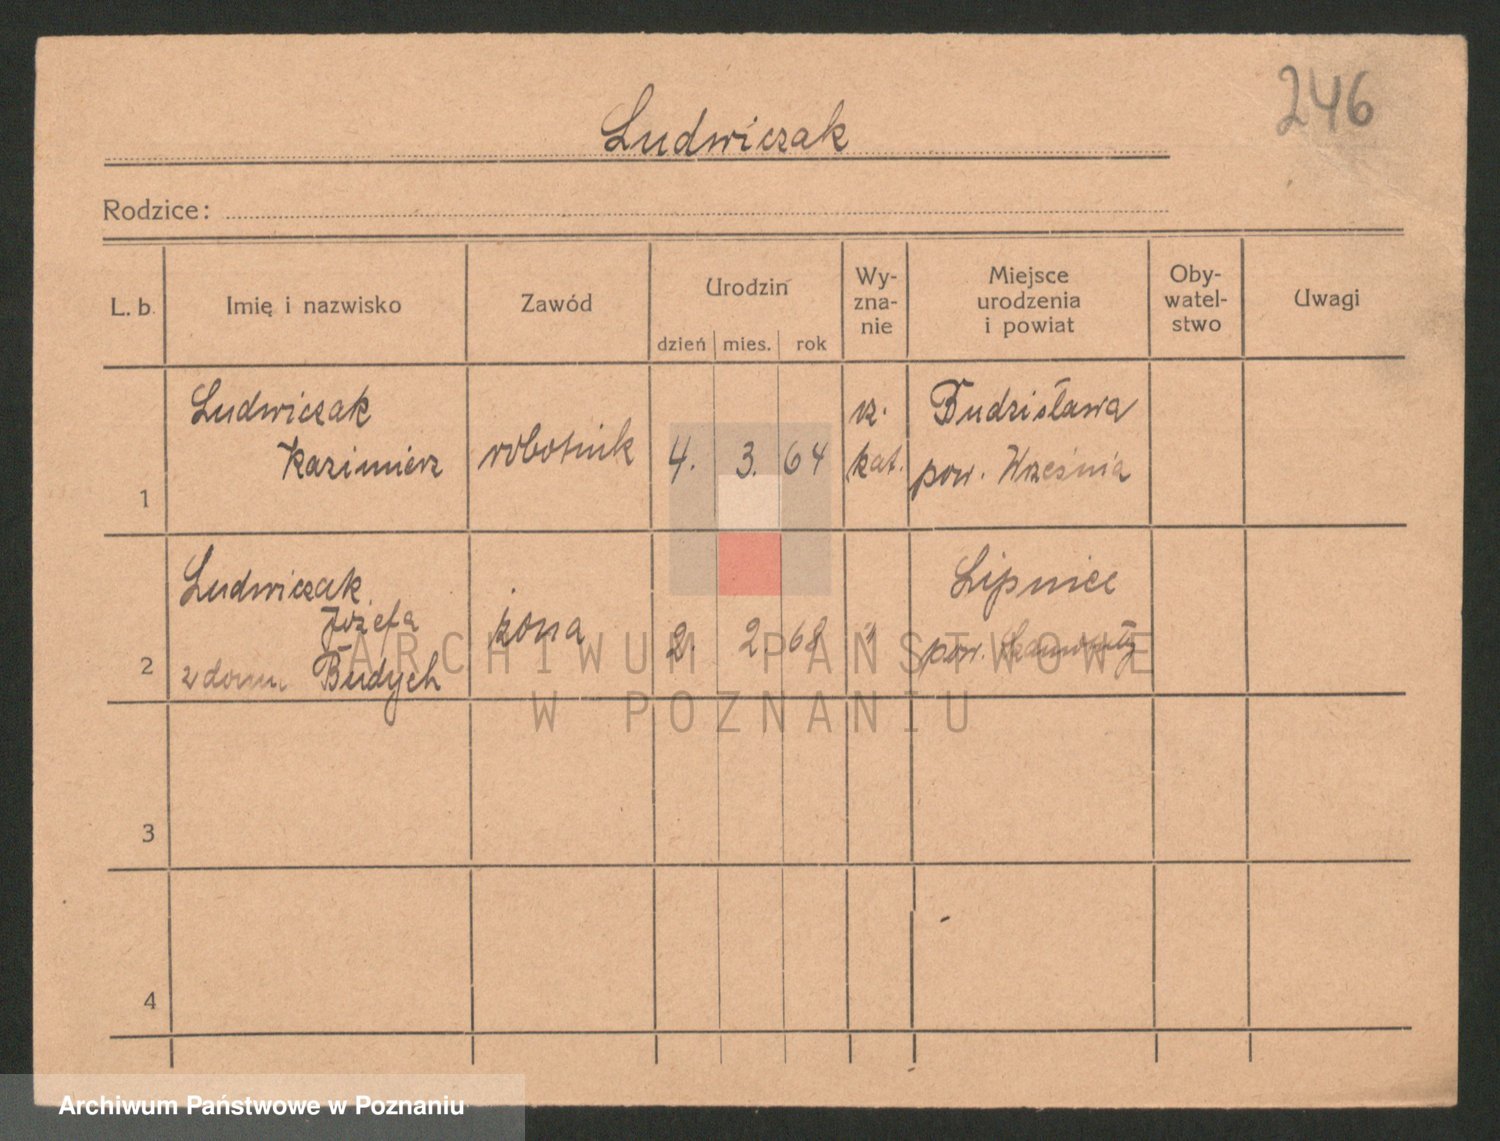 246
Ludwiczak
Rodzice:
L. b.
Imię i nazwisko
Zawód
Urodzin
dzień mies. rok
Wy-
zna-
nie
Miejsce
urodzenia
i powiat
Oby-
watel-
stwo
Uwagi
1
Ludwiczak
Kazimierz
robotnik
4. 3. 64
rz.
kat.
Budzisława
pow. Września
2
Ludwiczak
Józefa
z domu Budych
żona
2. 2. 68
"
Lipnice
pow. Szamotuły
3
4
ARCHIWUM PAŃSTWOWE
W POZNANIU
Archiwum Państwowe w Poznaniu